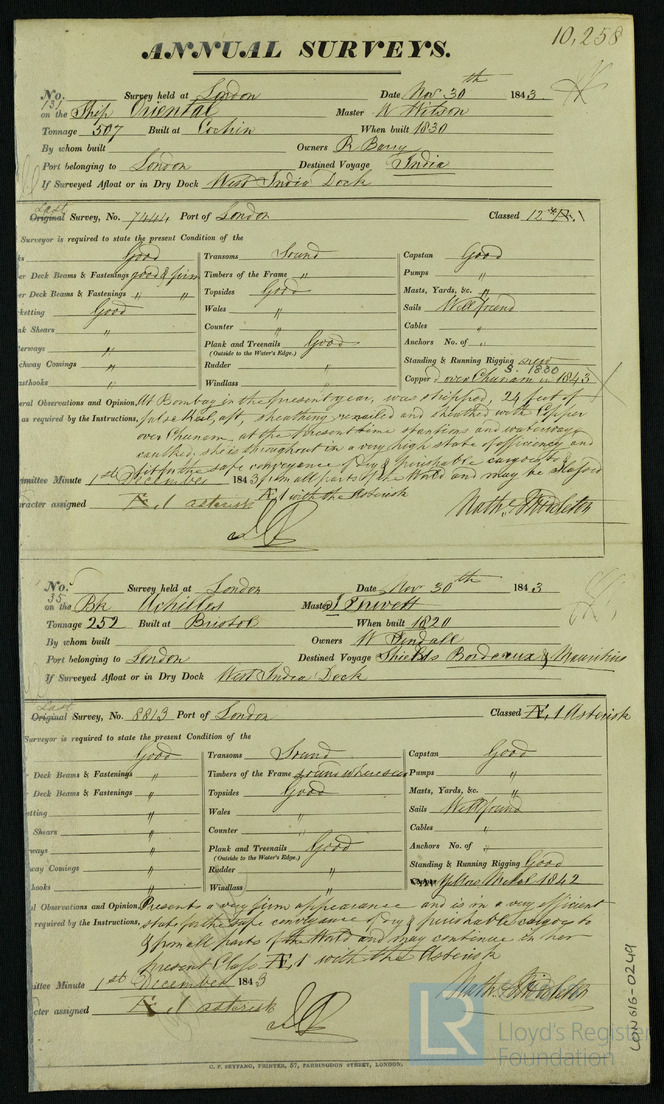 10,258
ANNUAL SURVEYS.
No. 131 Survey held at London Date Nov 30th 1843
on the Ship Oriental Master W Wilson
Tonnage 507 Built at Cochin When built 1830
By whom built Owners R Barry
Port belonging to London Destined Voyage India
If Surveyed Afloat or in Dry Dock West India Dock
Last
Original Survey, No. 7444 Port of London Classed 12 Æ.1
Surveyor is required to state the present Condition of the
ks Good Transoms Sound Capstan Good
er Deck Beams & Fastenings good & firm Timbers of the Frame " Pumps "
er Deck Beams & Fastenings " " Topsides Good Masts, Yards, &c. "
keting Good Wales " Sails Well found
nk Shears " Counter " Cables "
erways " Plank and Treenails Good Anchors No. of "
(Outside to the Water's Edge.)
chway Comings " Rudder " Standing & Running Rigging good
S. 1830
asthooks " Windlass " Copper over Chunam in 1843
eral Observations and Opinion, At Bombay in the present year, was stripped, 24 feet of
as required by the Instructions, false Keel, aft, sheathing renailed and sheathed with Copper
over Chunam, at the present time stantions and waterways
caulked, she is throughout in a very high state of efficiency and
fit for the safe conveyance of dry & perishable cargoes to &
mmittee Minute 1st December 1843 from all parts of the World and may be classed
Æ 1 with the Asterisk
racter assigned Æ, 1 asterisk
Nath. Middleton
No. 35 Survey held at London Date Nov 30th 1843
on the Bk Achilles Master J
Tonnage 252 Built at Bristol When built 1820
By whom built Owners W Tindall
Port belonging to London Destined Voyage Shields Bordeaux & Mauritius
If Surveyed Afloat or in Dry Dock West India Dock
Last
Original Survey, No. 8813 Port of London Classed Æ, 1 Asterisk
Surveyor is required to state the present Condition of the
Good Transoms Sound Capstan Good
Deck Beams & Fastenings " Timbers of the Frame sound where seen Pumps "
Deck Beams & Fastenings " Topsides Good Masts, Yards, &c. "
etting " Wales " Sails Well found
Shears " Counter " Cables "
ways " Plank and Treenails Good Anchors No. of "
(Outside to the Water's Edge.)
way Comings " Rudder " Standing & Running Rigging Good
hooks " Windlass " Yellow Metal 1842
al Observations and Opinion, Presents a very firm appearance and is in a very efficient
required by the Instructions, state for the safe conveyance of dry & perishable cargoes to
& from all parts of the World and may continue in her
present Class Æ 1 with the Asterisk
ittee Minute 1st December 1843
Nath. Middleton
cter assigned Æ, 1 asterisk
C. F. SEYFANG, PRINTER, 57, FARRINGDON STREET, LONDON.
LR
Lloyd's Register
Foundation
LON616-0249